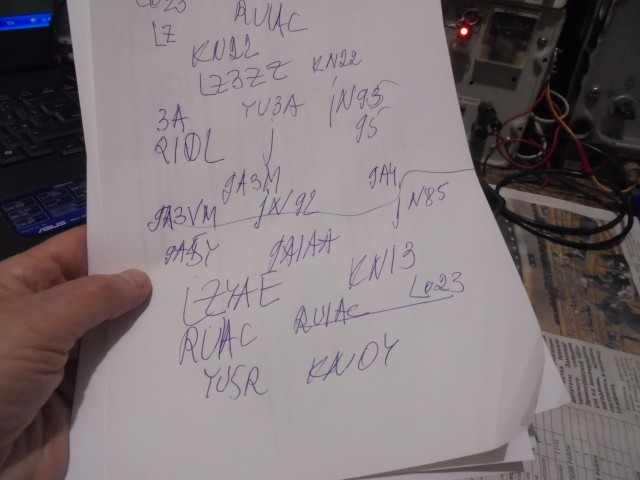 Lo23
RU1AC
LZ
KN22
LZ3ZZ KN22
3A YU3A JN95
R1OL J 95
9A3M 9A4
9A3VM JN92 JN85
9A5Y 9A1AA
KN13
LZ4AE Lo23
RU1AC RU1AC
YU5R KN04
ASUS